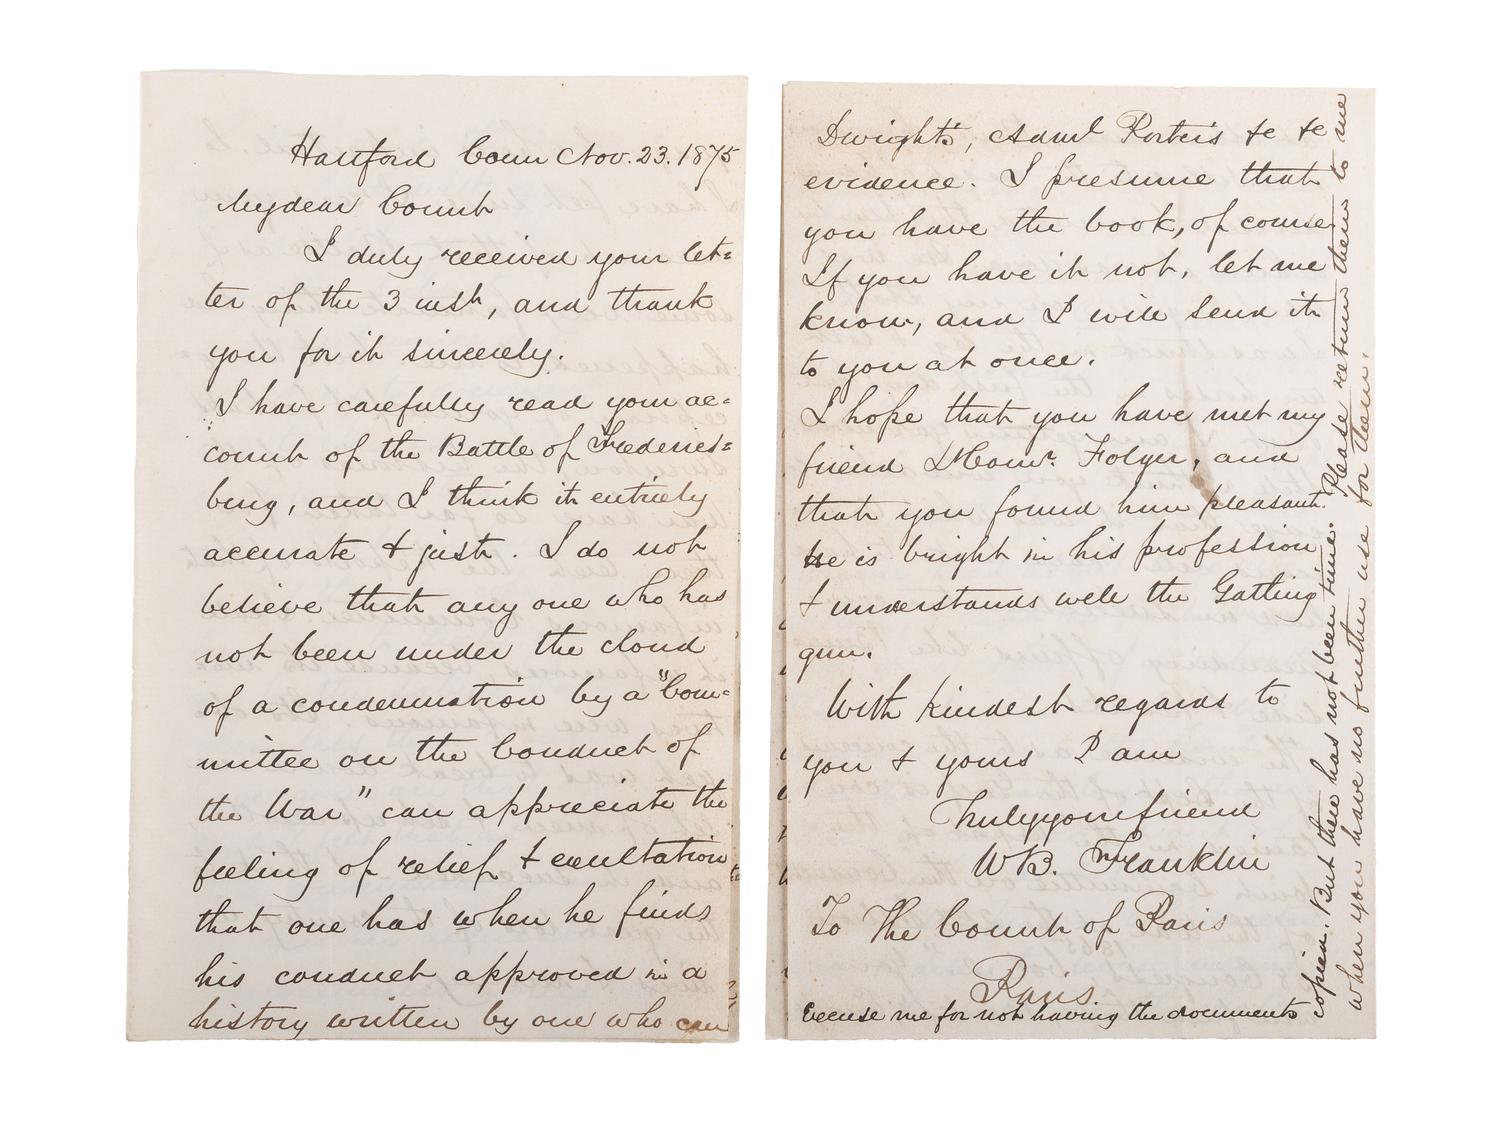 Hartford Conn Nov. 23. 1875
My dear Count
I duly received your let=
ter of the 3 inst, and thank
you for it sincerely.
I have carefully read your ac=
count of the Battle of Frederics=
burg, and I think it entirely
accurate & just. I do not
believe that any one who has
not been under the cloud
of a condemnation by a "Com=
mittee on the Conduct of
the War" can appreciate the
feeling of relief & exultation
that one has when he finds
his conduct approved in a
history written by one who can
Dwight's, Adml Porter's &c &c
evidence. I presume that
you have the book, of course
If you have it not, let me
know, and I will send it
to you at once.
I hope that you have met my
friend Folger, and
that you found him pleasant.
He is bright in his profession
& understands well the Gatling
gun.
With kindest regards to
you & yours I am
Truly your friend
W B. Franklin
To The Count of Paris
Paris.
Excuse me for not having the documents
copied. But there has not been time. Please return them to me
when you have no further use for them.